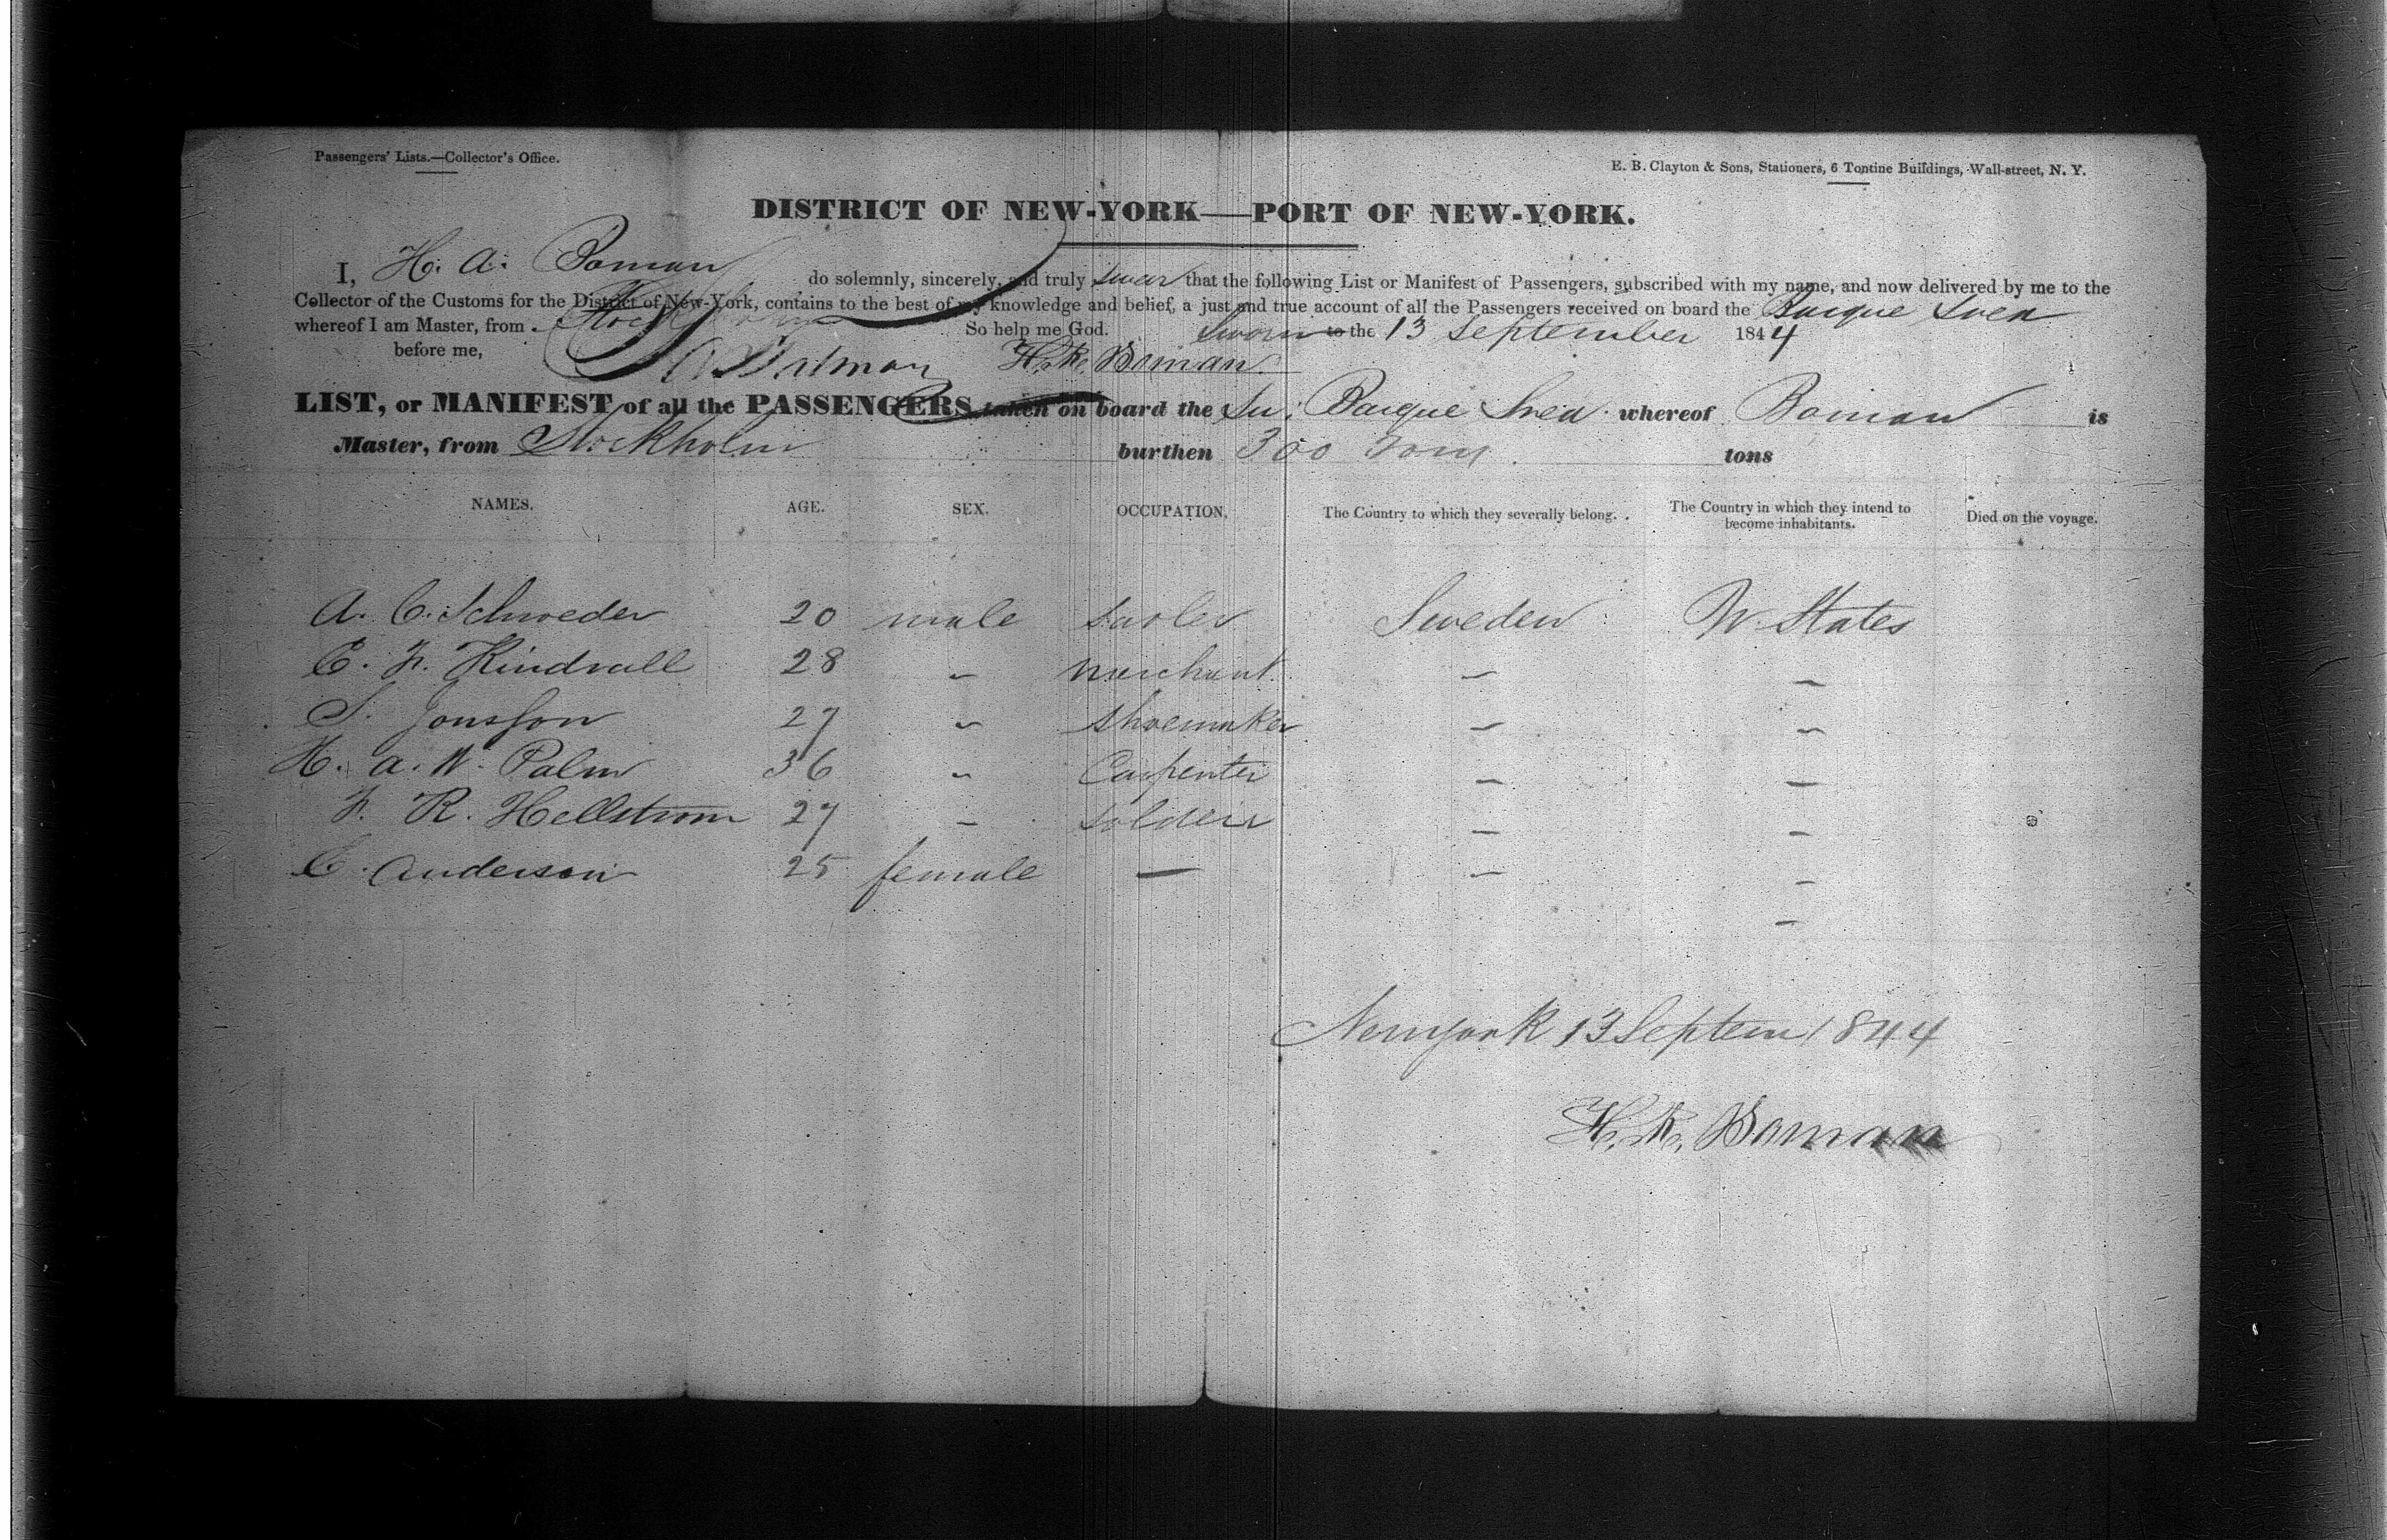 Passengers' Lists.—Collector's Office.
E. B. Clayton & Sons, Stationers, 6 Tontine Buildings, Wall-street, N. Y.
DISTRICT OF NEW-YORK—PORT OF NEW-YORK.
I, H. A. Boman do solemnly, sincerely, and truly swear that the following List or Manifest of Passengers, subscribed with my name, and now delivered by me to the
Collector of the Customs for the District of New-York, contains to the best of my knowledge and belief, a just and true account of all the Passengers received on board the Barque Svea
whereof I am Master, from Stockholm So help me God. Sworn to the 13 September 1844
before me, H. A. Boman
LIST, or MANIFEST of all the PASSENGERS taken on board the Sw: Barque Svea whereof Boman is
Master, from Stockholm burthen 300 Tons tons
NAMES. AGE. SEX. OCCUPATION. The Country to which they severally belong. The Country in which they intend to become inhabitants. Died on the voyage.
A. C. Schroeder 20 male Sweden States
C. F. Kindvall 28 " merchant — —
S. Jonsson 27 " shoemaker — —
H. A. W. Palm 36 " Carpenter — —
F. R. Hellstrom 27 — soldier — —
C. Anderson 25 female — — —
—
Newyork 13 Septem 1844
H. A. Boman